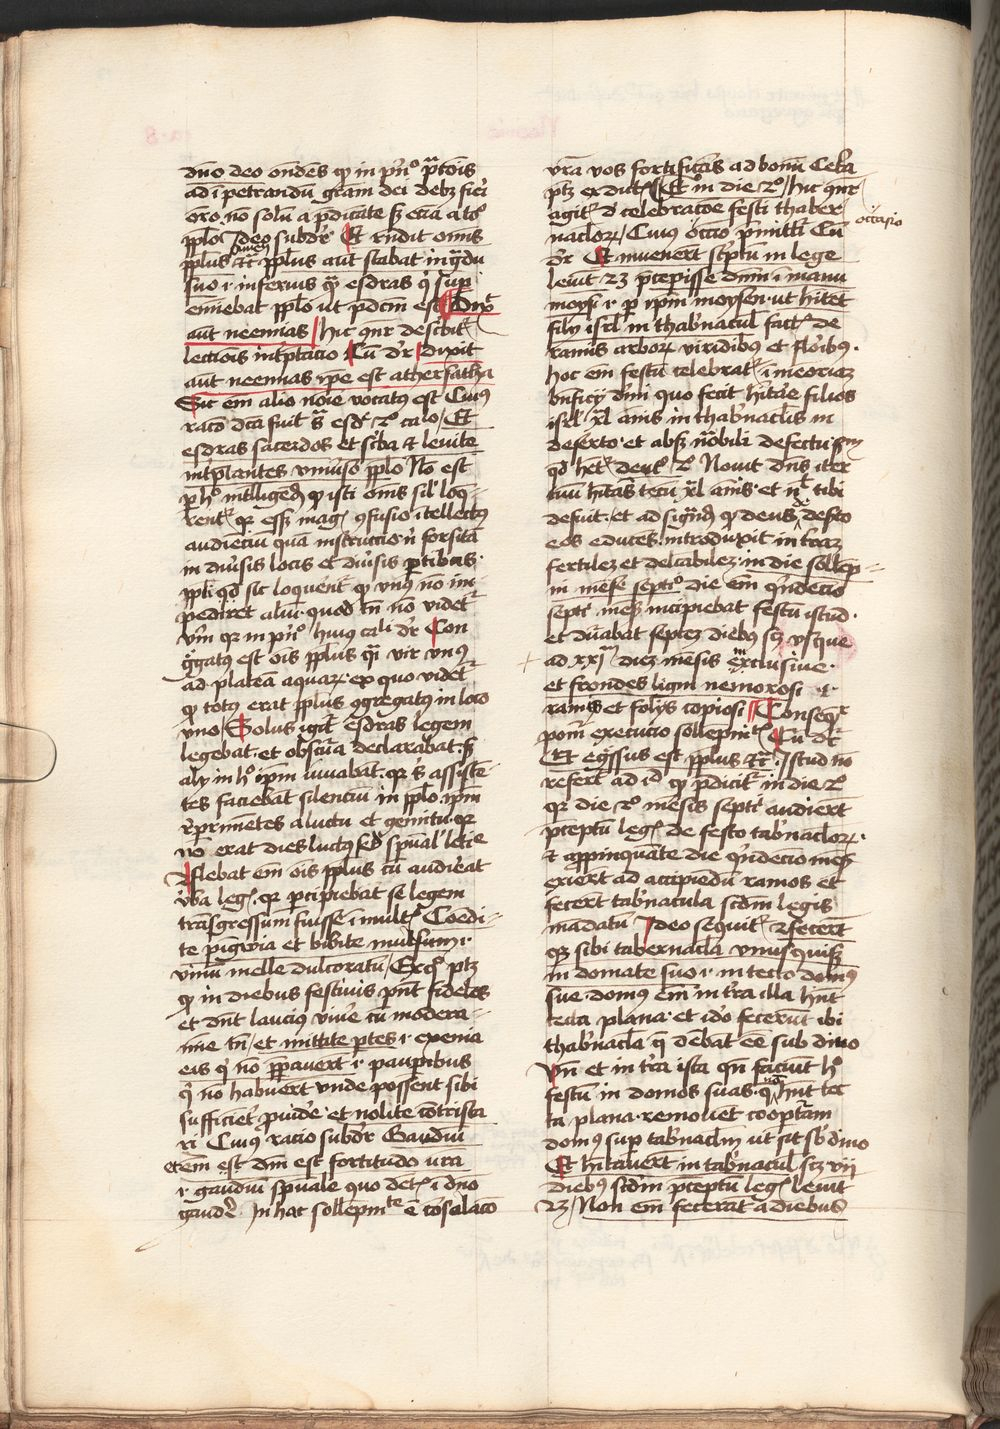 dno deo ondens qp in pn° ptois
ad ipetrandu gram dei debz fieri
oro no solu a pdicate sz etia a to°
pplo / ideo subdr Et rndit omis
pplus amen etc pplus aut stabat in gdu
suo .i. inferius qa esdras qi sup
eminebat pplo ut pdcm est Dixt
aut neemias / hic qnr describit
lectiois intptacio Cu dr Dixit
aut neemias ipe est athersatha
Sic em alio noie vocatus est Cuius
raco dca fuit s esd 2 ca io / Et
esdras sacerdos et scba et levite
intptantes vniuso pplo No est
p h° intelligend qp isti omis sil loq
rent qr essz mag 9fusio itellectus
audienciu qua instructio n forsita
in diusis locis et diusis ptibus
ppli qd sic loquent qp vnus no im
pediret aliu quod tn no videt
vm qr in pn° / huius cali dr Con
ggatus est ois pplus qi vir vnus
ad platea aquar ex quo videt
qp totus erat pplus 9gregatus in loco
vno / Solus igit esdras legem
legebat et obscura declarabat sz
aly in h° ipm iuuabat qr s assiste
tes faciebat silenciu in pplo ipm
rprimetes a luctu et gemitu qr
no erat dies luctus sed spual leticie
flebat em ois pplus cu audieat
vba leg qr pcipiebat se legem
transgressum fuisse i mult Coedi=
te pigwia et bibite mulsum .i.
vinu melle dulcoratu / Ex q° ptz
qp in diebus festiuis pnt fideles
et dnt laucius viue cu modera=
mie tn / et mittite ptes .i. exenia
eis qi no ppauert .i. paupibus
qi no habuert vnde possent sibi
sufficient puide et nolite cotrista
ri Cuius racio subdr Gaudiu
etem est dni est fortitudo vra
.i. gaudiu spuale quo det i dno
gaude In hac sollepnite e cosolaco
vra vos fortificas ad bonu Cetera
ptz ex dict / Et in die 2° / hic qnr
agit d celebracoe festi thaber
naclor / Cuius occio pmittit Cu
occasio
dr Et inuenert scptu in lege
leuit 23 pcepisse dnm i manu
moysi .i. p ipm moysen ut hitet
fily isrl in thabnacul fact de
ramis arbor viridibus et floibus .
hoc em festu celebrat i meoriaz
bnficy diui quo fecit hitare filios
isrl xl anis in thabnaclis in
deserto et absz nobili defectu sm
qd het deut 2 Nouit dns iter
tuu hitas tecu xl anis et nl tibi
defuit et ad signd qp deus de deseo
eos educes introduxit in traz
fertilez et delcabilez in die sollep=
ni mese septi° die em qndecio
septi mes incipiebat festu istud .
et durabat septez diebus scz vsque
ad xxi diez mesis exclusiue .
et frondes ligni nemorosi .i.
ramis et folys copiosi Conseqr
pom execucio sollepnit Cu dr
Et egssus est pplus etc Istud no
refert ad id qp pdicit in die 2
qr die 2 mesis septi audiert
pceptu leg de festo tabnaclor .
et appinquate die qndecio mes
exiert ad accipiedu ramos et
fecert tabnacula scdm legis
madatu Ideo sequit 2 fecert
qz sibi tabernacla vnusquisqz
in domate suo .i. in tecto domus
sue domus em in tra illa hnt
tecta plana et ido fecerut ibi
thabnacla q debat ee sub diuo
Vn et in tra ista qn faciut h°
festu in domos suas q no hnt tec
ta plana remouet coopturam
domus sup tabnaclm ut sit sb diuo
Et hitauert in tabnacul scz vii
diebus scdm pceptu leg leuit
23 / Non em fecerat a diebus